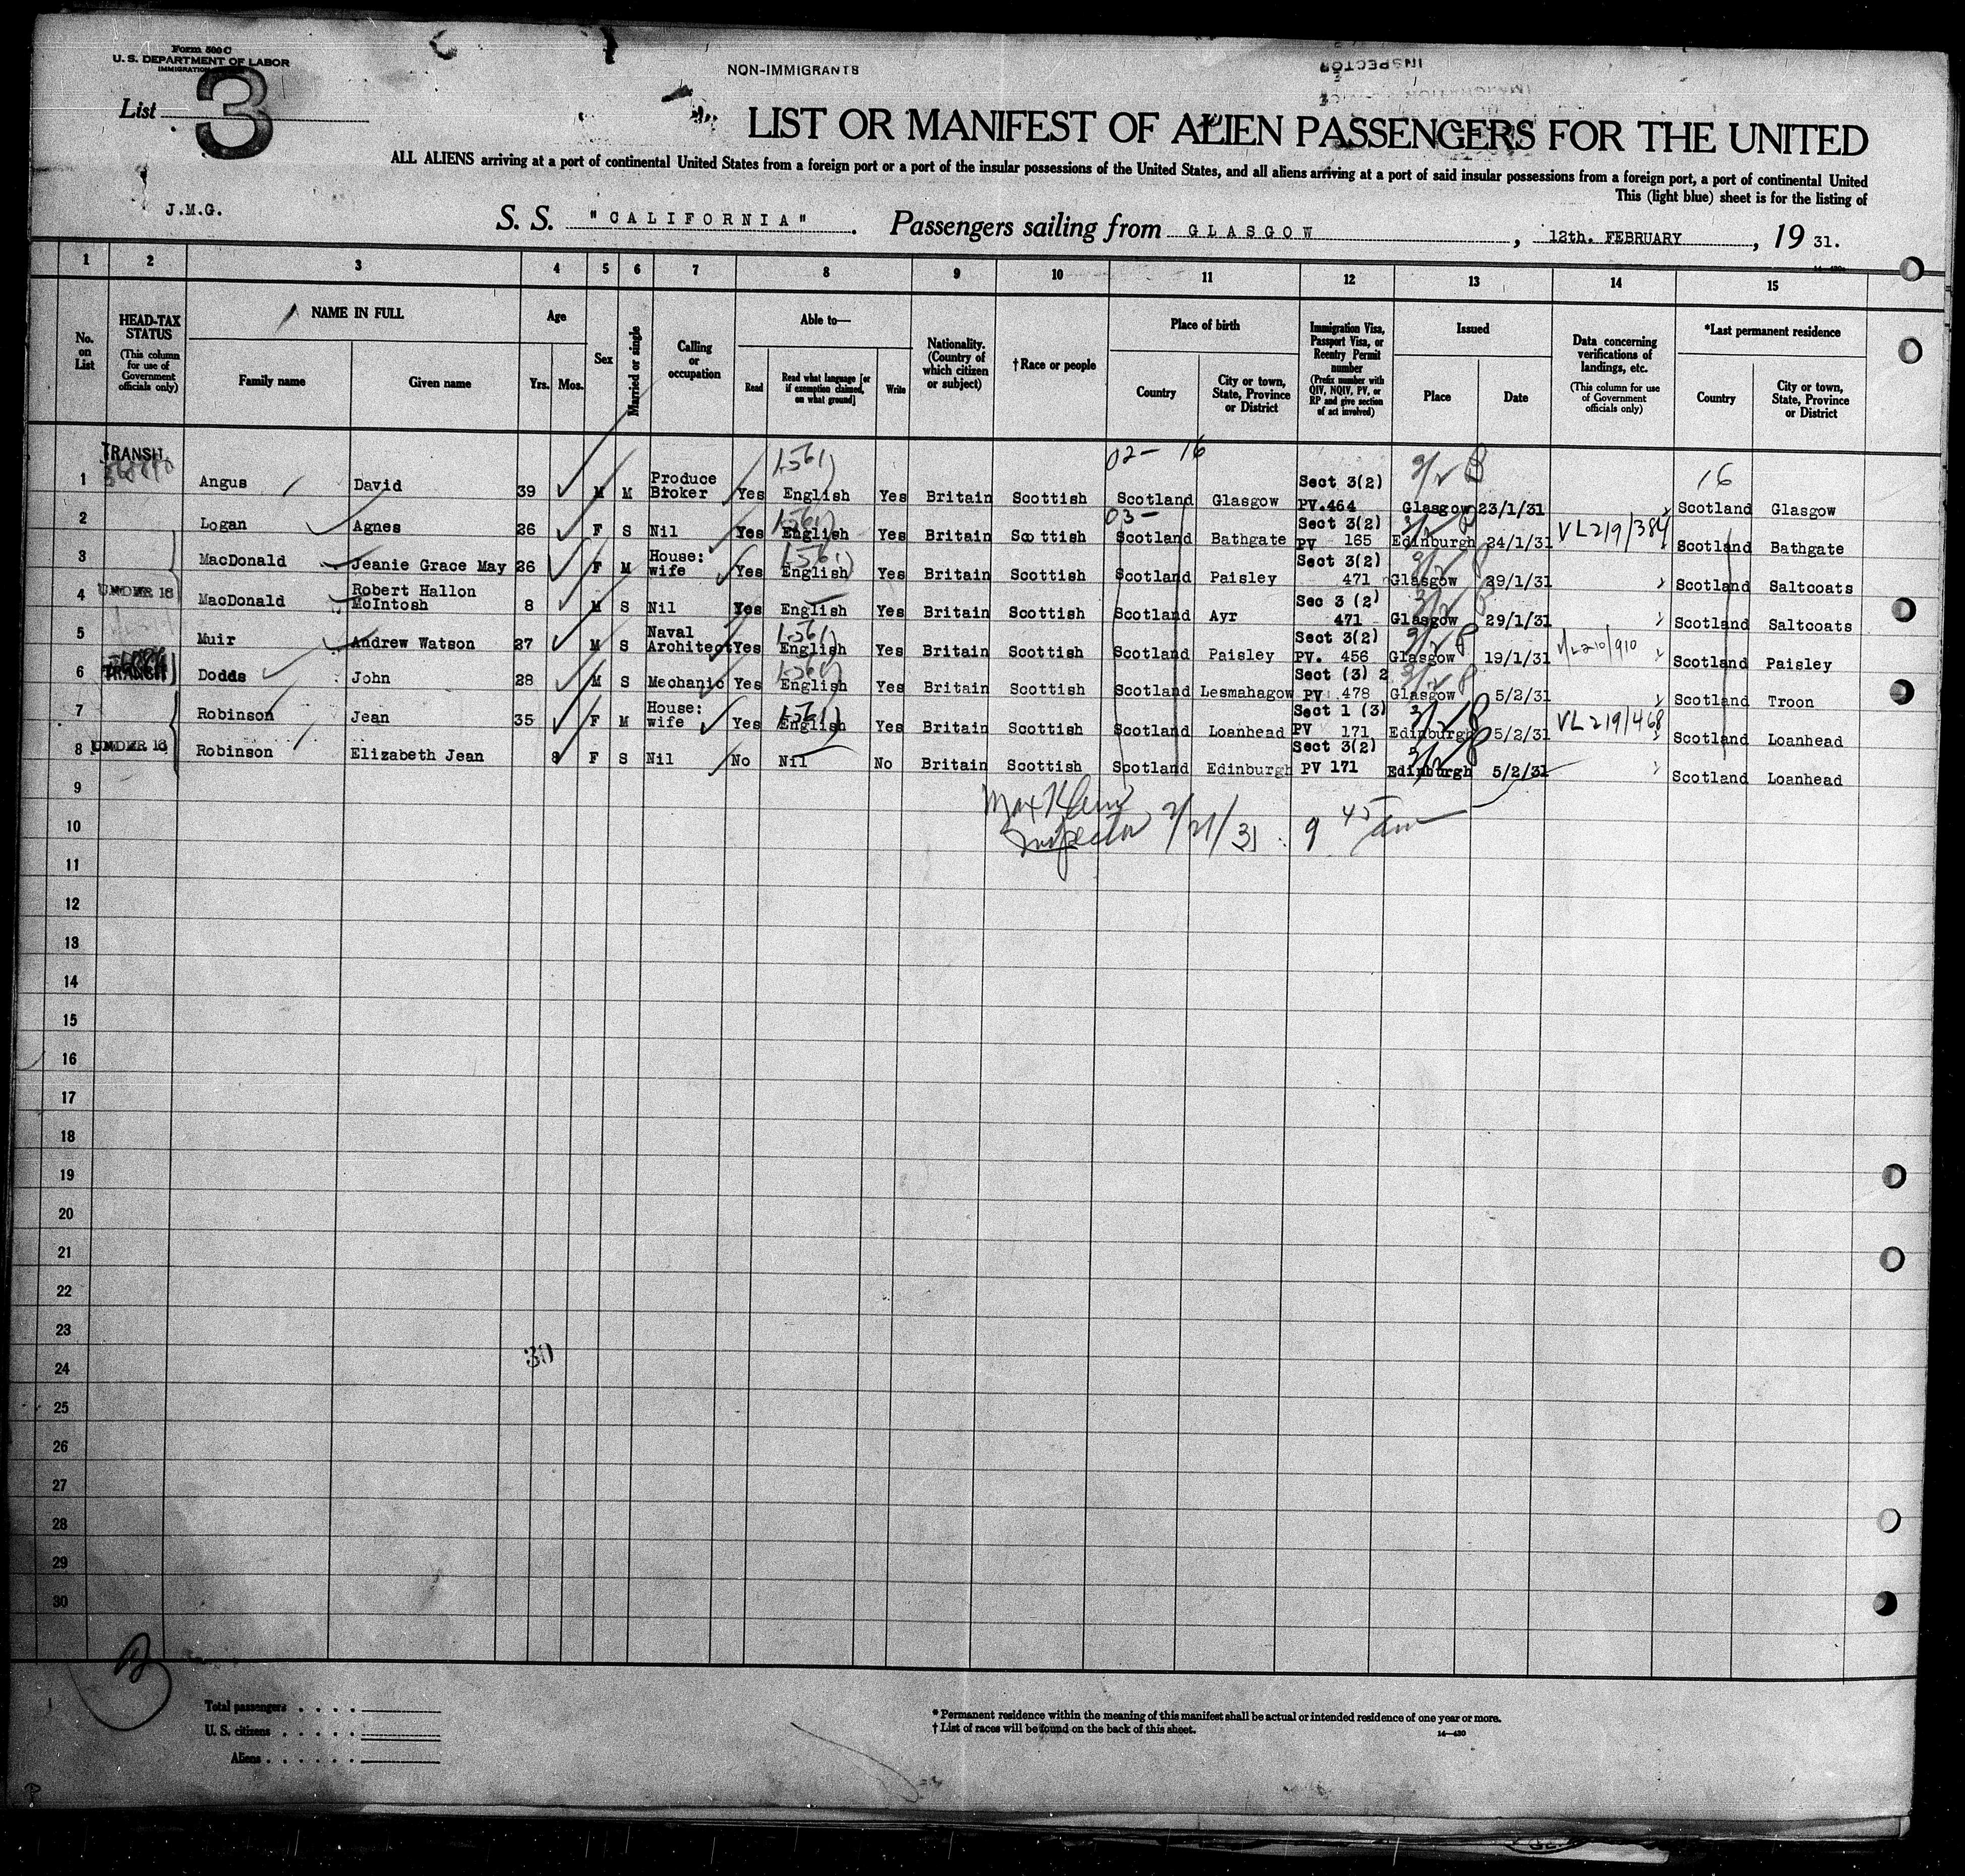 Form 500 C
U. S. DEPARTMENT OF LABOR
IMMIGRATION
NON-IMMIGRANTS
INSPECTOR
List 3
LIST OR MANIFEST OF ALIEN PASSENGERS FOR THE UNITED
ALL ALIENS arriving at a port of continental United States from a foreign port or a port of the insular possessions of the United States, and all aliens arriving at a port of said insular possessions from a foreign port, a port of continental United
This (light blue) sheet is for the listing of
J.M.G.
S. S. "CALIFORNIA". Passengers sailing from GLASGOW, 12th. FEBRUARY, 19 31.
1 2 3 4 5 6 7 8 9 10 11 12 13 14 15
No. on List
HEAD-TAX STATUS (This column for use of Government officials only)
NAME IN FULL
Family name
Given name
Age
Yrs. Mos.
Sex
Married or single
Calling or occupation
Able to—
Read
Read what language [or if exemption claimed, on what ground]
Write
Nationality. (Country of which citizen or subject)
†Race or people
Place of birth
Country
City or town, State, Province or District
Immigration Visa, Passport Visa, or Reentry Permit number (Prefix number with QIV, NQIV, PV, or RP and give section of act involved)
Issued
Place
Date
Data concerning verifications of landings, etc. (This column for use of Government officials only)
*Last permanent residence
Country
City or town, State, Province or District
02- 16
16
1 TRANSIT Angus David 39 M M Produce Broker Yes English Yes Britain Scottish Scotland Glasgow Sect 3(2) PV.464 Glasgow 23/1/31 Scotland Glasgow
03-
2 Logan Agnes 26 F S Nil Yes English Yes Britain Scottish Scotland Bathgate Sect 3(2) PV 165 Edinburgh 24/1/31 VL219/384 Scotland Bathgate
3 MacDonald Jeanie Grace May 26 F M House: wife Yes English Yes Britain Scottish Scotland Paisley Sect 3(2) 471 Glasgow 29/1/31 Scotland Saltcoats
4 UNDER 16 MacDonald Robert Hallon McIntosh 8 M S Nil Yes English Yes Britain Scottish Scotland Ayr Sec 3 (2) 471 Glasgow 29/1/31 Scotland Saltcoats
5 Muir Andrew Watson 27 M S Naval Architect Yes English Yes Britain Scottish Scotland Paisley Sect 3(2) PV. 456 Glasgow 19/1/31 VL210/910 Scotland Paisley
6 TRANSIT Dodds John 28 M S Mechanic Yes English Yes Britain Scottish Scotland Lesmahagow Sect (3) 2 PV 478 Glasgow 5/2/31 Scotland Troon
7 Robinson Jean 35 F M House: wife Yes English Yes Britain Scottish Scotland Loanhead Sect 1 (3) PV 171 Edinburgh 5/2/31 VL219/468 Scotland Loanhead
8 UNDER 16 Robinson Elizabeth Jean 8 F S Nil No Nil No Britain Scottish Scotland Edinburgh Sect 3(2) PV 171 Edinburgh 5/2/31 Scotland Loanhead
9
10 Inspector 2/21/31 9 45 am
11
12
13
14
15
16
17
18
19
20
21
22
23
24 30
25
26
27
28
29
30
B
Total passengers
U. S. citizens
Aliens
* Permanent residence within the meaning of this manifest shall be actual or intended residence of one year or more.
† List of races will be found on the back of this sheet.
14—430